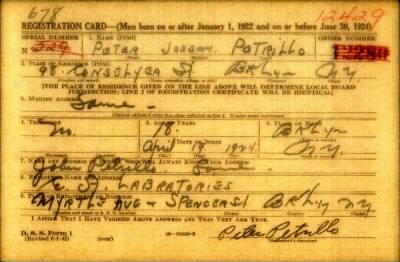 678
12429
REGISTRATION CARD—(Men born on or after January 1, 1922 and on or before June 30, 1924)
SERIAL NUMBER 1. NAME (Print) ORDER NUMBER
329 Peter Joseph Petrillo 12280
2. PLACE OF RESIDENCE (Print)
98 CONSELYEA St BKLyn N.Y.
[THE PLACE OF RESIDENCE GIVEN ON THE LINE ABOVE WILL DETERMINE LOCAL BOARD
JURISDICTION; LINE 2 OF REGISTRATION CERTIFICATE WILL BE IDENTICAL]
3. MAILING ADDRESS
Same
4. TELEPHONE 5. AGE IN YEARS 6. PLACE OF BIRTH
No. 18 BKLyn
DATE OF BIRTH
April 19 1924 N.Y.
7. NAME AND ADDRESS OF PERSON WHO WILL ALWAYS KNOW YOUR ADDRESS
Petrillo Same
8. EMPLOYER'S NAME AND ADDRESS
LABRATORIES
MYRTLE AVE & SPENCER St BKLyn N.Y.
I AFFIRM THAT I HAVE VERIFIED ABOVE ANSWERS AND THAT THEY ARE TRUE.
D. S. S. Form 1
(Revised 6-1-42) (over)
Peter Petrillo